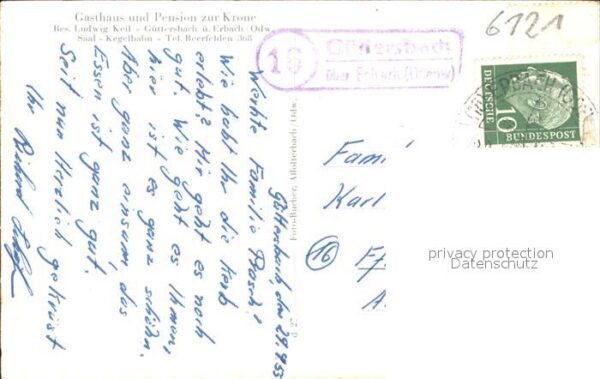 Gasthaus und Pension zur Krone
Bes. Ludwig Keil - Güttersbach ü. Erbach/Odw.
Saal - Kegelbahn - Tel. Beerfelden 368
(16) Güttersbach
über Erbach (Odenw)
6121
DEUTSCHE
BUNDESPOST
10
Güttersbach, den 29.9.55
Werthe Familie
Wie habt Ihr die Kerb
erlebt? Mir geht es noch
gut. Wie geht es Ihnen,
hier ist es ganz schön.
Aber ganz einsam, das
Essen ist ganz gut.
Seit nun Herzlich gegrüst
Ihr Richard
Foto-Bücher, Affolterbach/Odw.
Fami
Karl
(16)
privacy protection
Datenschutz